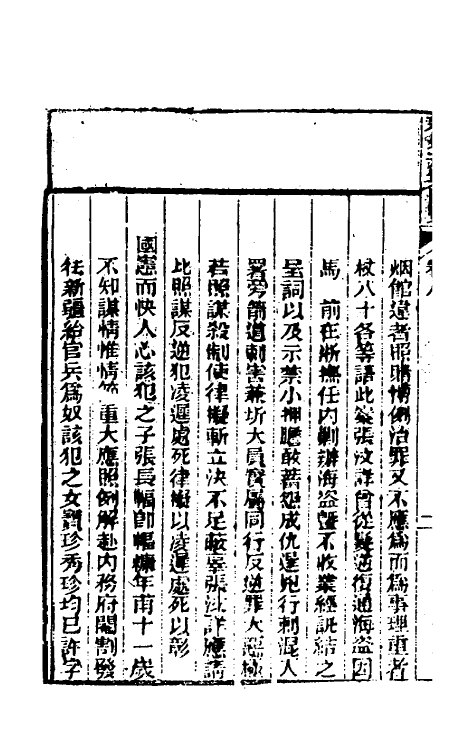 烟館違者照賭博例治罪又不應為而為事理重者
杖八十各等語此案張汶詳曾從髮逆復通海盜因
馬 前在浙撫任内剿辦海盜暨不收業經訊結之
呈詞以及示禁小押膽敢蓄怨成仇逞兇行刺混入
署旁箭道刺害兼圻大員實屬同行反逆罪大惡極
若照謀殺制使律擬斬立決不足蔽辜張汶詳應請
比照謀反逆犯凌遲處死律擬以凌遲處死以彰
國憲而快人心該犯之子張長幅即幅 年甫十一歲
不知謀情惟情節重大應照例解赴内務府閹割發
往新疆給官兵為奴該犯之女寶珍秀珍均已許字
卷八
二